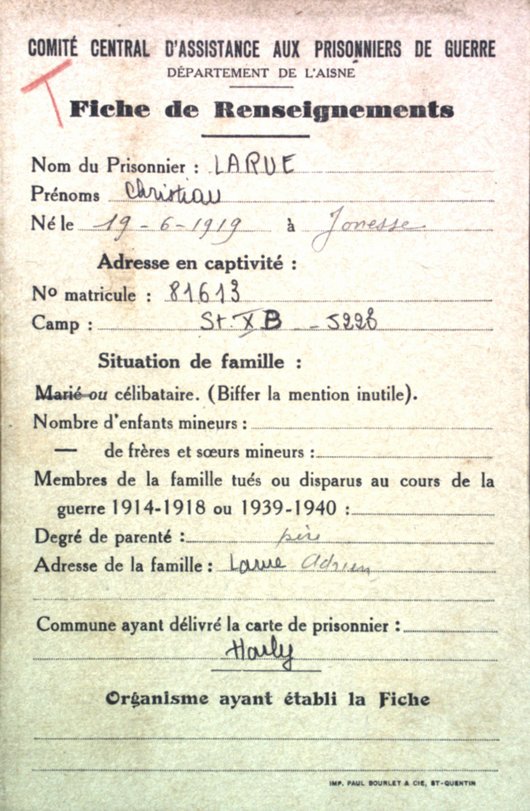 COMITÉ CENTRAL D'ASSISTANCE AUX PRISONNIERS DE GUERRE
DÉPARTEMENT DE L'AISNE
Fiche de Renseignements
Nom du Prisonnier : LARUE
Prénoms Christian
Né le 19-6-1919 à
Adresse en captivité :
No matricule : 81613
Camp : St. X B - 522
Situation de famille :
Marié ou célibataire. (Biffer la mention inutile).
Nombre d'enfants mineurs :
— de frères et sœurs mineurs :
Membres de la famille tués ou disparus au cours de la
guerre 1914-1918 ou 1939-1940 :
Degré de parenté : père
Adresse de la famille : Larue Adrien
Commune ayant délivré la carte de prisonnier :
Harly
Organisme ayant établi la Fiche
IMP. PAUL BOURLET & CIE, ST-QUENTIN